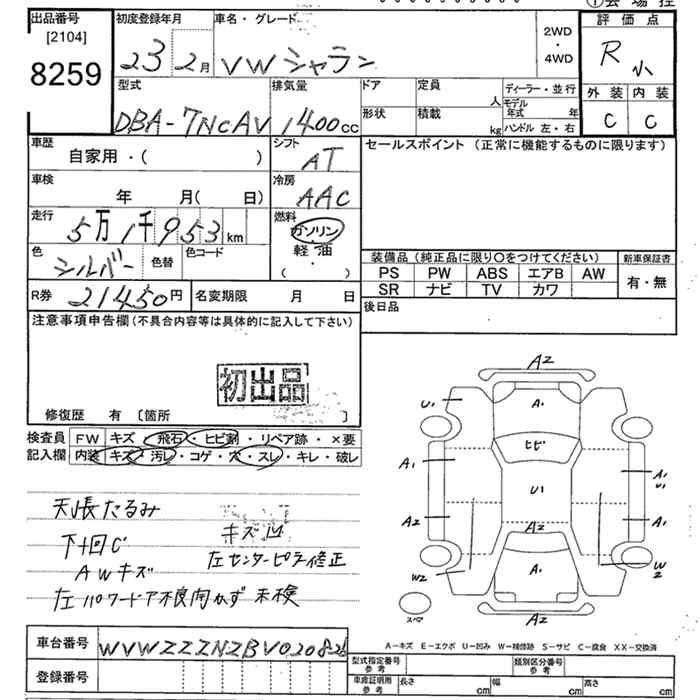 ①会場控
出品番号 初度登録年月 車名・グレード 2WD・4WD 評価点
[2104]
8259 23 2月 VW シャラン R 小
型式 排気量 ドア 定員 人 ディーラー・並行 外装 内装
DBA-7NCAV 1400cc 形状 積載 kg モデル年式 年 ハンドル 左・右 C C
車歴 自家用・( ) シフト AT セールスポイント (正常に機能するものに限ります)
車検 年 月( 日) 冷房 AAC
走行 5万1千953km 燃料 ガソリン・軽油・( )
色 シルバー 色替 色コード
装備品 (純正品に限り○をつけてください) 新車保証書
PS PW ABS エアB AW 有・無
SR ナビ TV カワ
R券 21450円 名変期限 月 日 後日品
注意事項申告欄(不具合内容等は具体的に記入して下さい)
初出品
修復歴 有 [箇所 ]
検査員 FW キズ・飛石・ヒビ割・リペア跡・×要
記入欄 内装 キズ・汚レ・コゲ・穴・スレ・キレ・破レ
天張たるみ
キズ凹
下廻C
左センターピラ修正
AWキズ
左パワードア不良開かず 未検
A2
U1 A1
ヒビ
A1 U1 A1 U1
A2 A2 A1
W2 A1 W2
スペア A2
A-キズ E-エクボ U-凹み W-補修跡 S-サビ C-腐食 XX-交換済
車台番号 WVWZZZ7NZBV020
登録番号
型式指定番号 参考 類別区分番号 参考
車庫証明用 参考 長さ cm 幅 cm 高さ cm